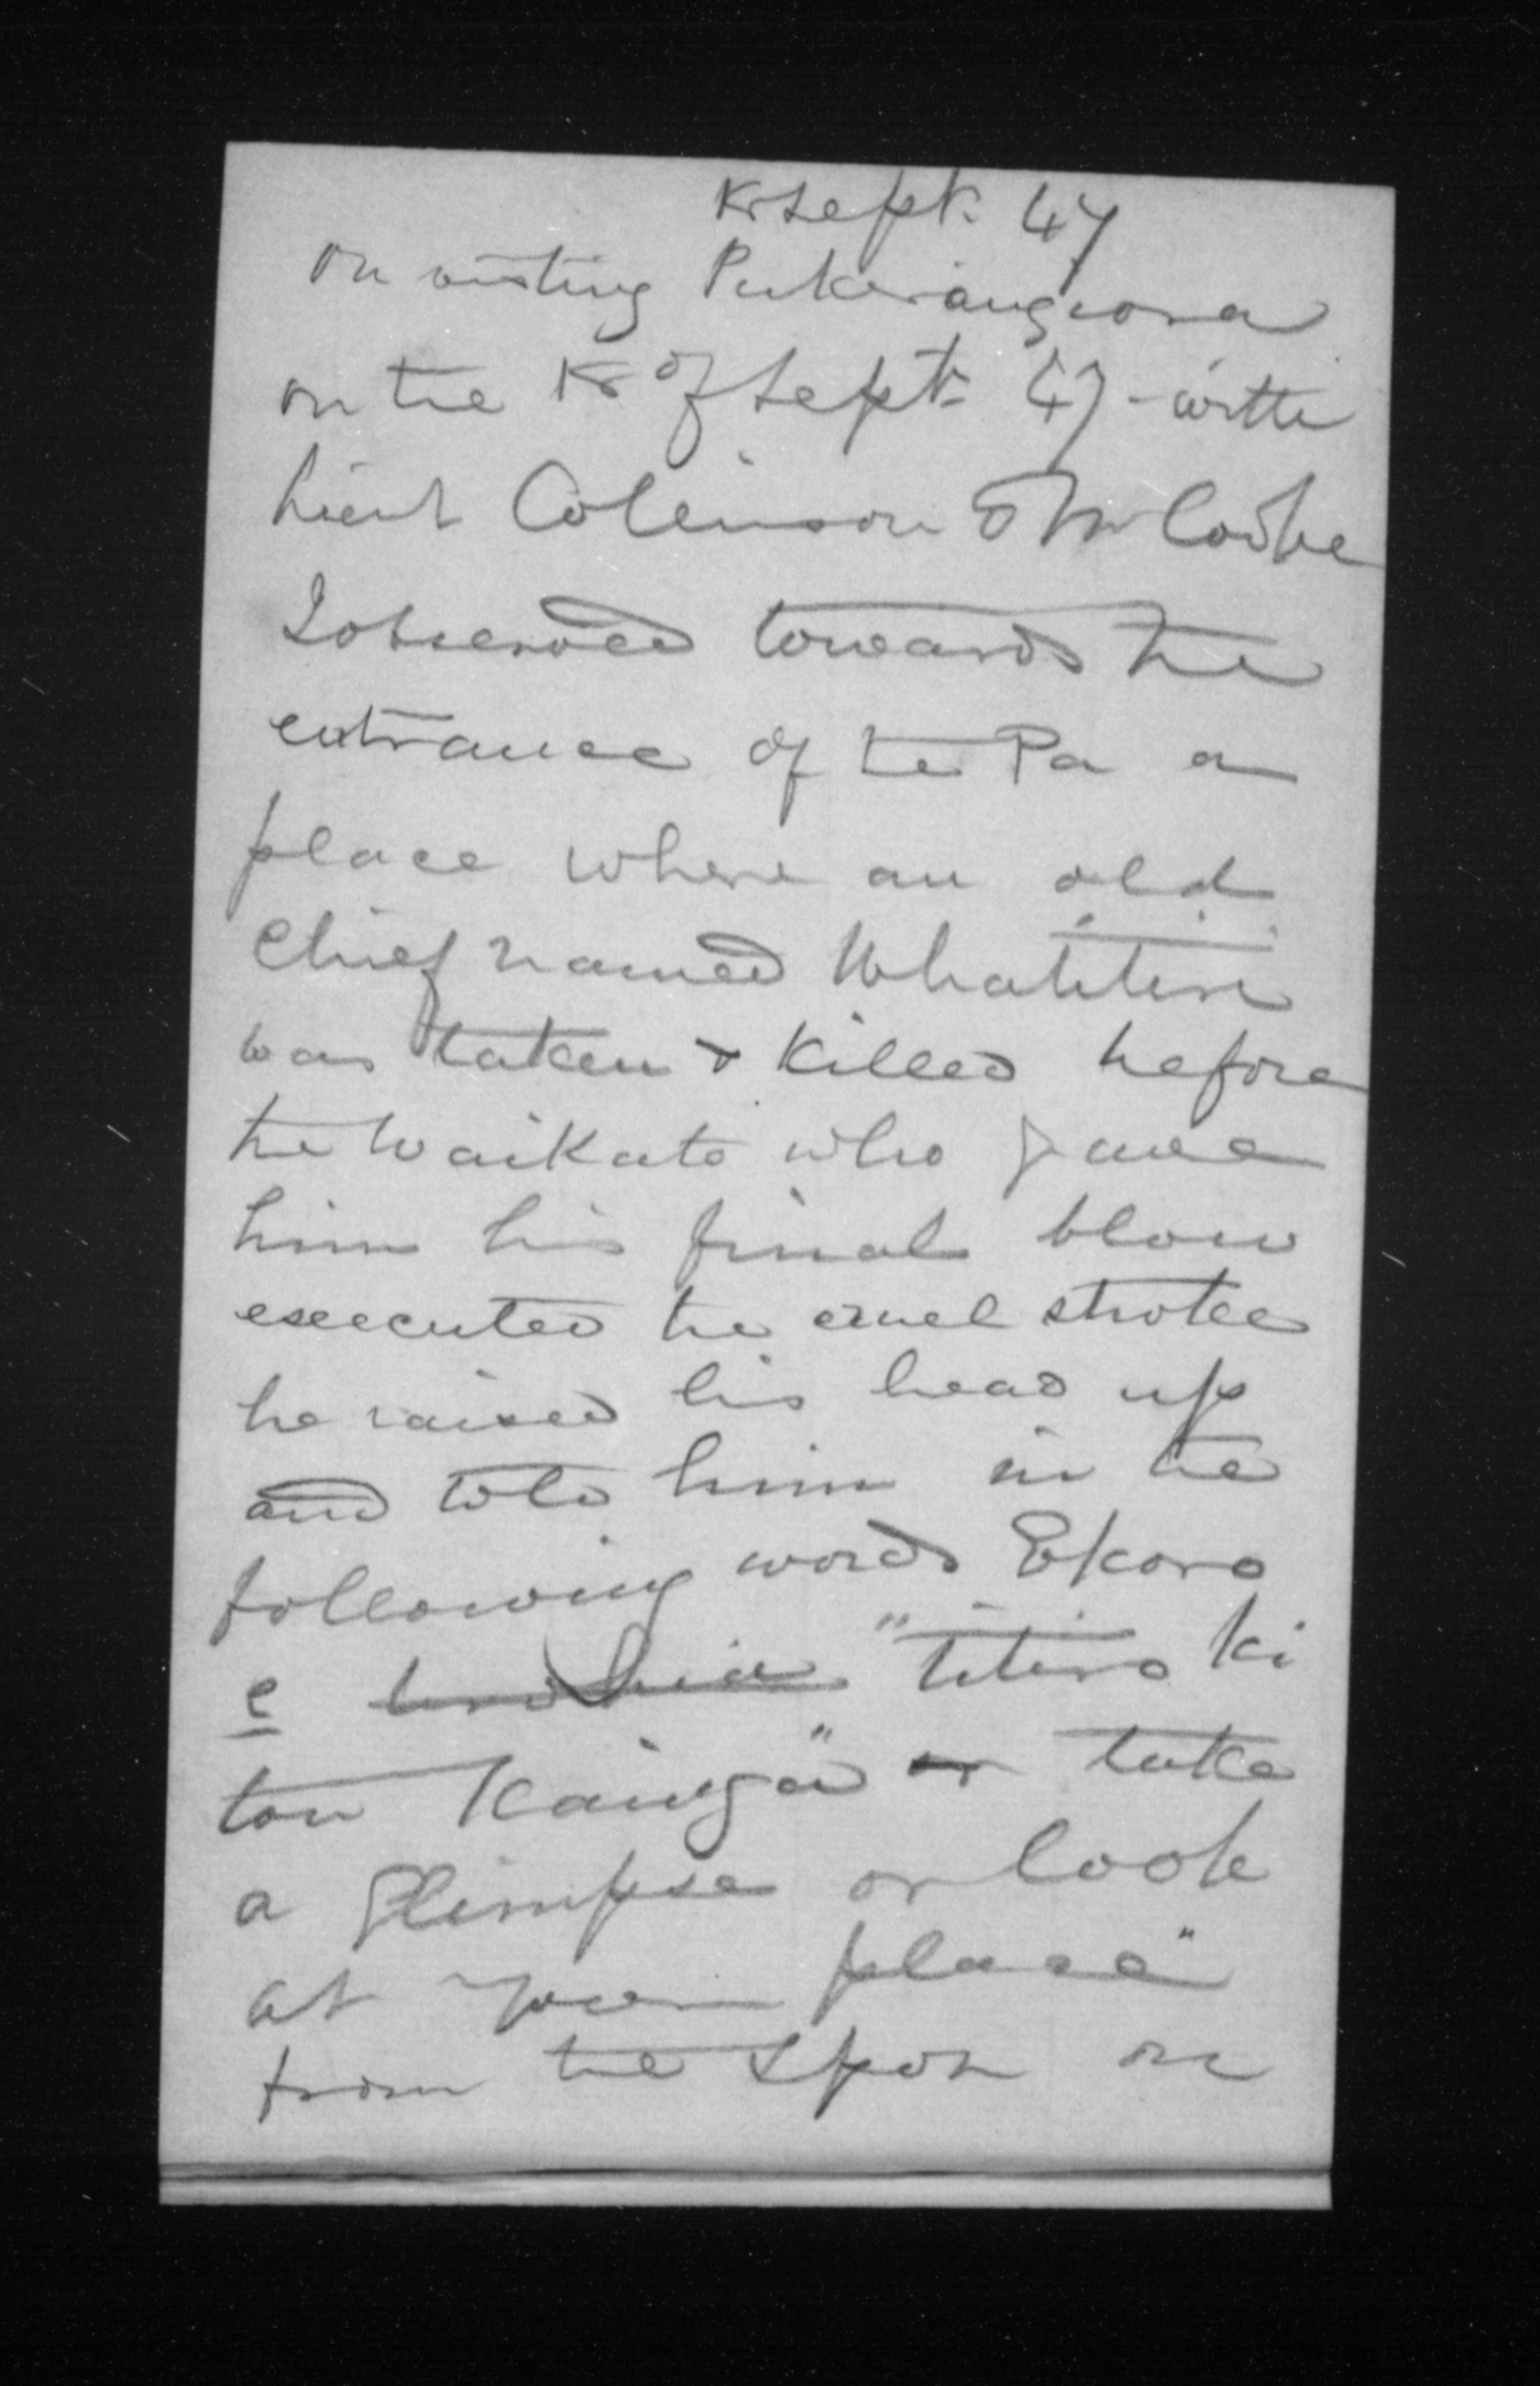 Sept. 47
On visiting Pukerangiora
on the of Sept. 47 - with
Lieut Colinson & Mr Cooke
I observed towards the
entrance of the Pa a
place where an old
Chief named Whatitiri
was taken & killed before
the Waikato who gave
him his final blow
executed the cruel stroke
he raised his head up
and told him in the
following words Ekoro
e "titiro ki
tou Kainga" or take
a glimpse or look
at your place"
from the Spot on